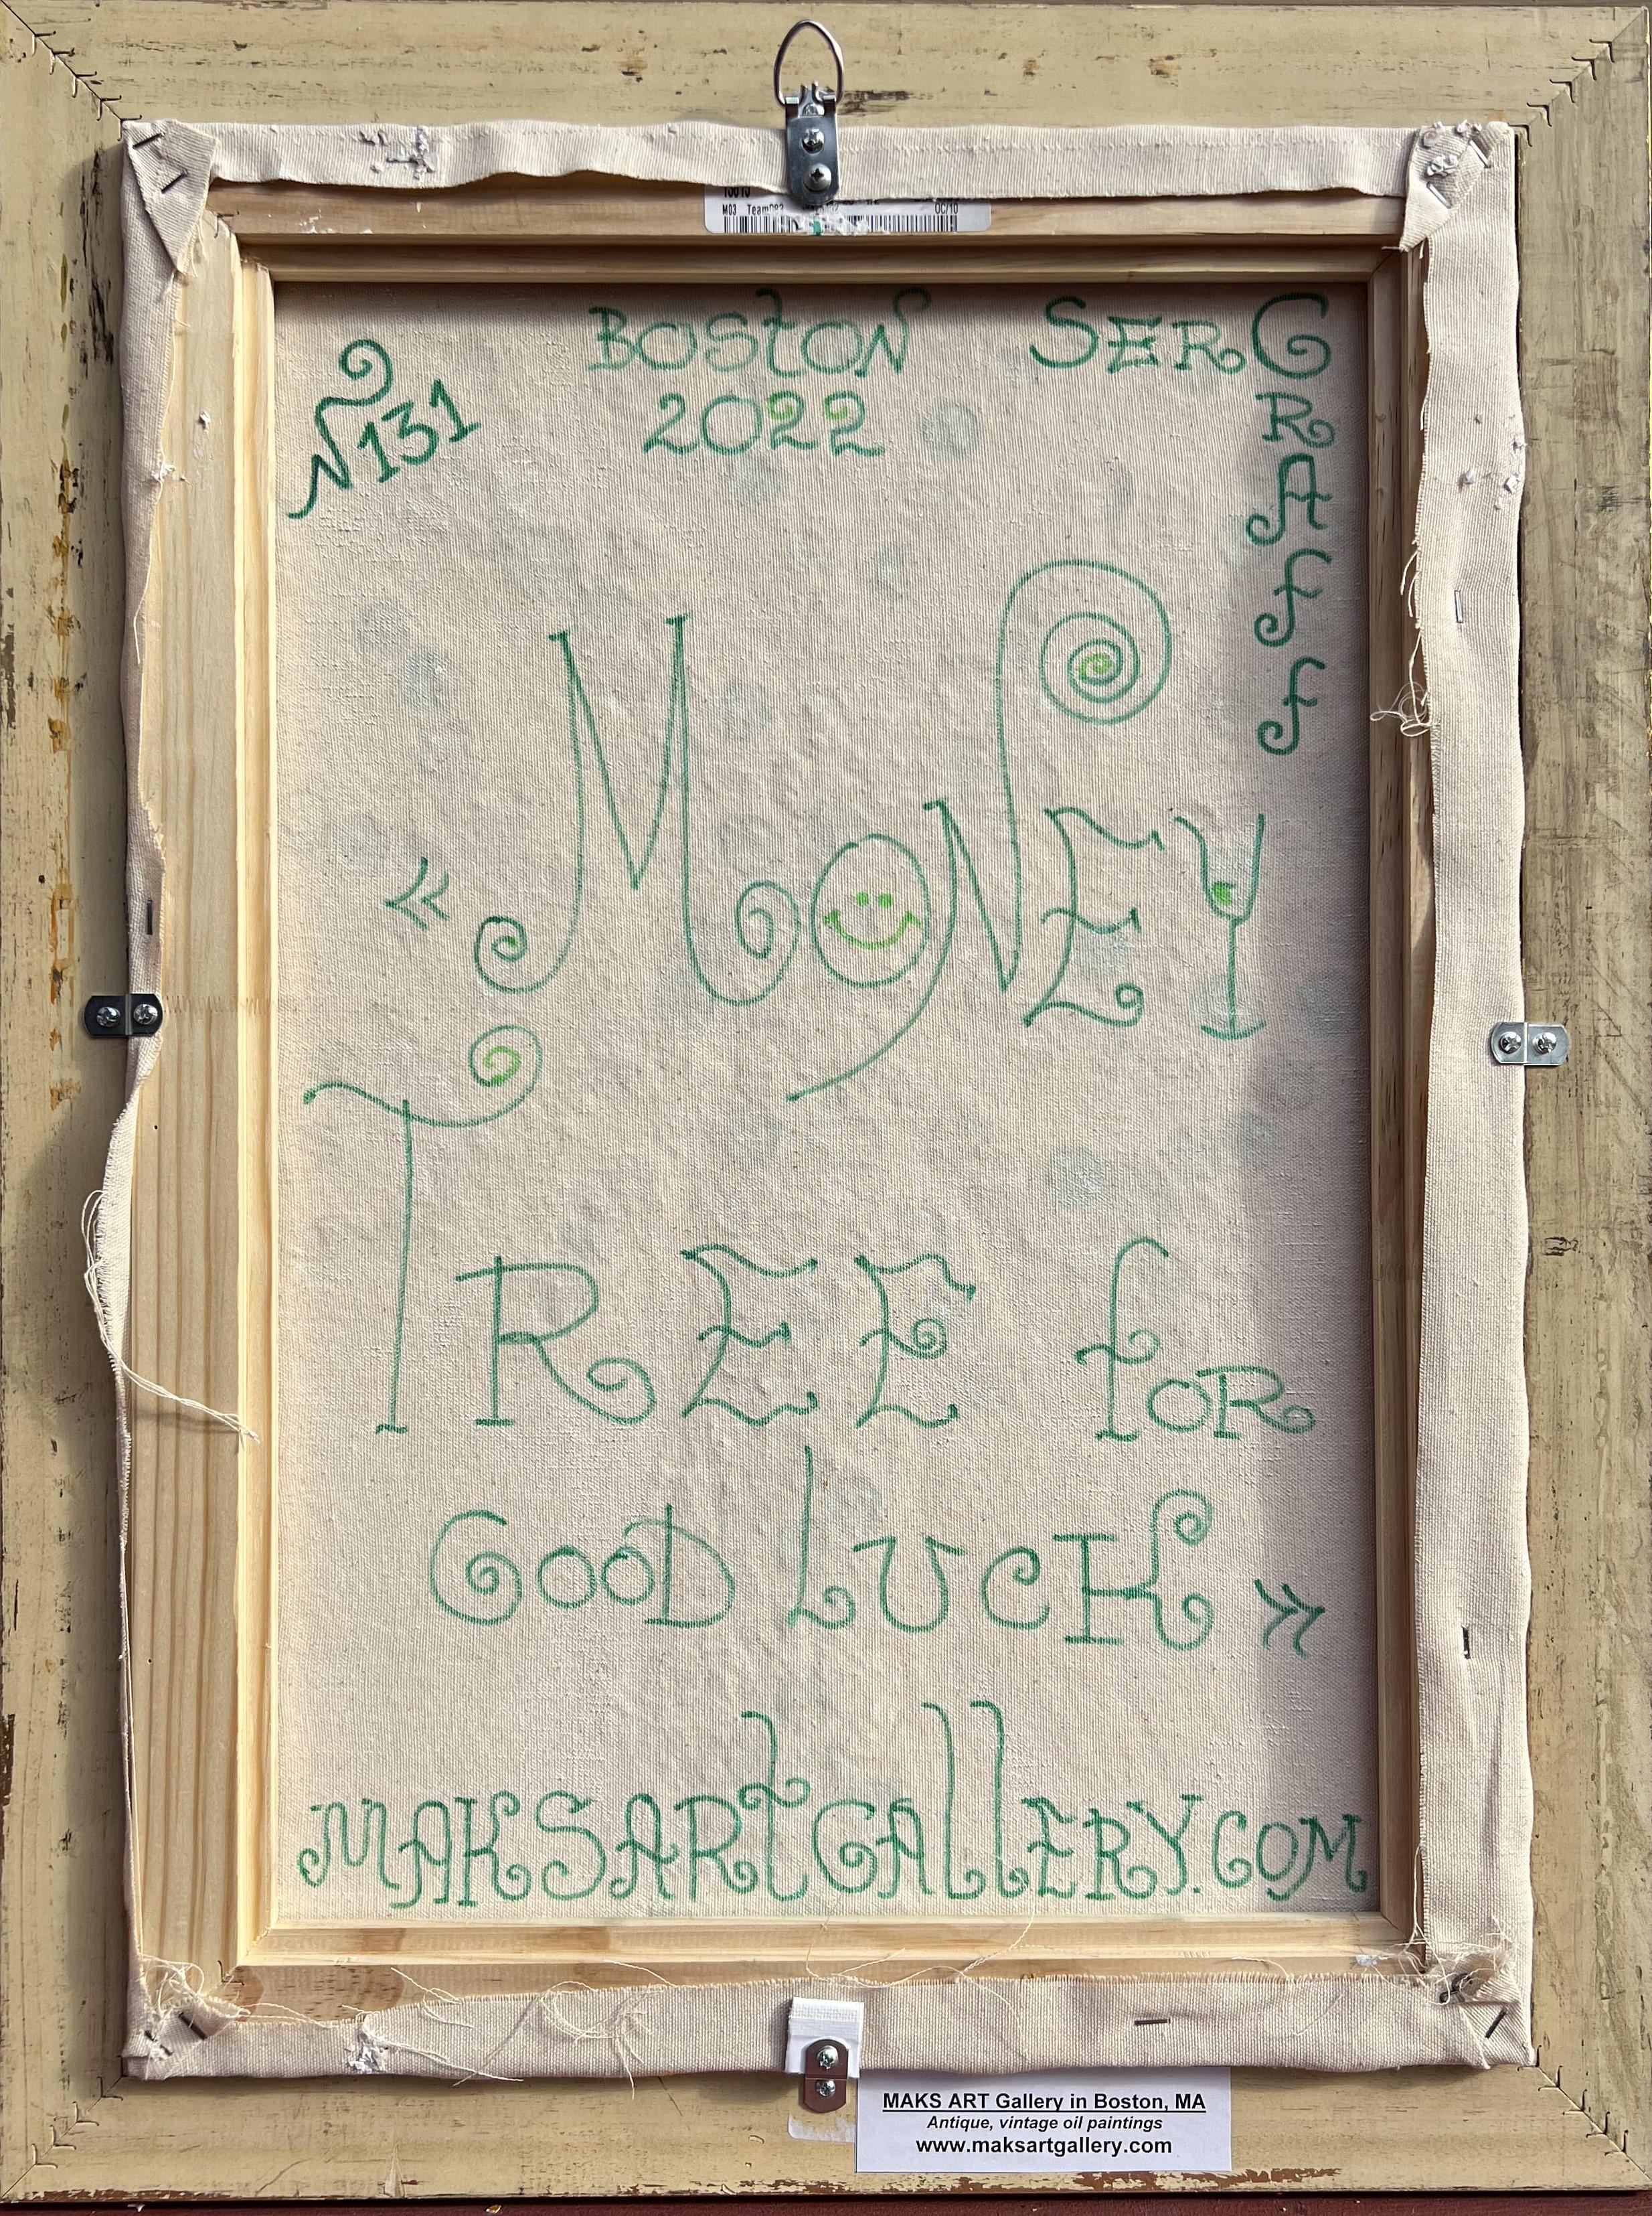 M03 Team083 OC/10
N131
BOSTON SERG
2022
RAFF
« MONEY
TREE FOR
GOOD LUCK »
MAKSARTGALLERY.COM
MAKS ART Gallery in Boston, MA
Antique, vintage oil paintings
www.maksartgallery.com